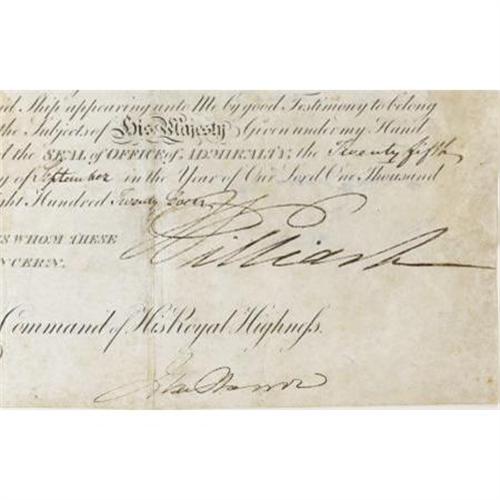 Ship appearing unto Me by good Testimony to belong
the Subjects of His Majesty Given under my Hand
the SEAL of OFFICE of ADMIRALTY, the Twenty fifth
y of September in the Year of Our Lord One Thousand
ght Hundred Twenty
William
S WHOM THESE
NCERN.
Command of His Royal Highness.